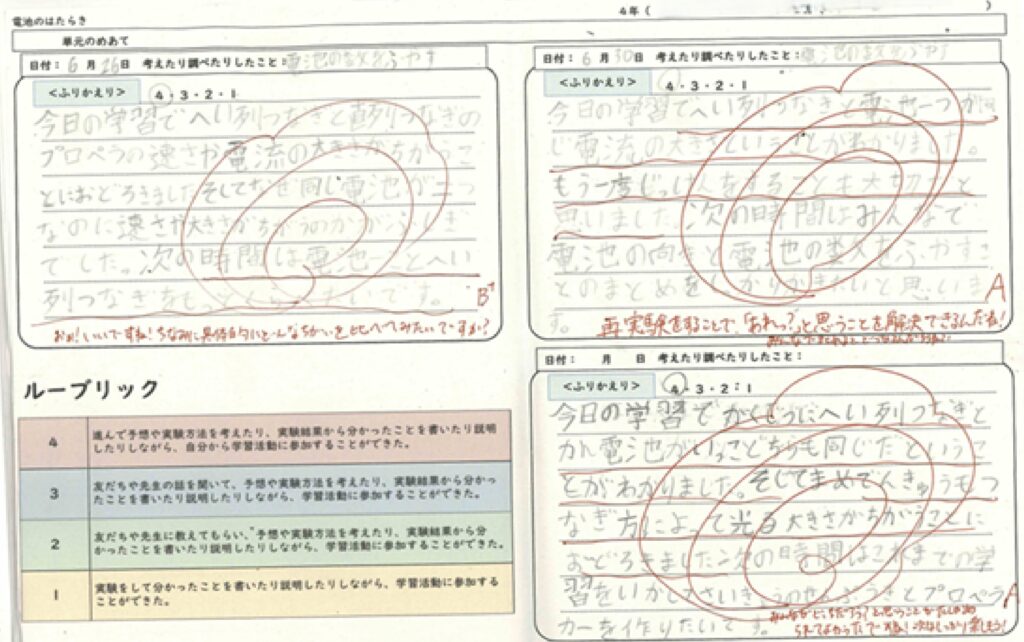 電池のはたらき
4年（　　　　）
単元のめあて
日付： 6 月 26日 考えたり調べたりしたこと：電池の数をふやす
＜ふりかえり＞ 4・3・2・1
今日の学習でへい列つなぎと直列つなぎの
プロペラの速さや電流の大きさがちがうこ
とにおどろきました。そしてなぜ同じ電池が二つ
なのに速さや大きさがちがうのかがふしぎ
でした。次の時間は電池一ことへい
列つなぎをもっとくらべたいです。
B⁺
おぉ！いいですね！ちなみに具体的にどんなちがいを比べてみたいですか？
日付： 6 月 30日 考えたり調べたりしたこと：電池の数をふやす
＜ふりかえり＞ 4・3・2・1
今日の学習でへい列つなぎと電池一つがお
じ電流の大きさということがわかりました。
もう一度じっけんをすることも大切だと
思いました。次の時間はみんなで
電池の向きと電池の数をふやすこ
とのまとめをしっかりかきたいと思いま
す。
A
再実験をすることで、「あれっ？」と思うことを解決できるんだね！
日付：　月　日 考えたり調べたりしたこと：
＜ふりかえり＞ 4・3・2・1
今日の学習でがくどうにへい列つなぎと
かん電池がいっこどちらも同じだというこ
とがわかりました。そしてまめでんきゅうもつ
なぎ方によって光る大きさがちがうことに
おどろきました。次の時間はこれまでの学
習をいかしてさいきょうのせんぷうきとプロペラ
カーを作りたいです。
A
ルーブリック
4 進んで予想や実験方法を考えたり、実験結果から分かったことを書いたり説明
したりしながら、自分から学習活動に参加することができた。
3 友だちや先生の話を聞いて、予想や実験方法を考えたり、実験結果から分かっ
たことを書いたり説明したりしながら、学習活動に参加することができた。
2 友だちや先生に教えてもらい、予想や実験方法を考えたり、実験結果から分
かったことを書いたり説明したりしながら、学習活動に参加することができた。
1 実験をして分かったことを書いたり説明したりしながら、学習活動に参加する
ことができた。